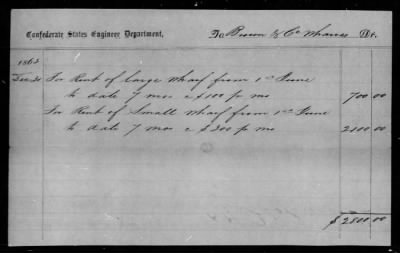 Confederate States Engineer Department, To & Co Wharves Dr.
1863
Dec 31 For Rent of Large Wharf from 1st June
to date 7 mos @ $100 p mo 700.00
For Rent of Small Wharf from 1st June
to date 7 mos @ $300 p mo 2100.00
$2800.00